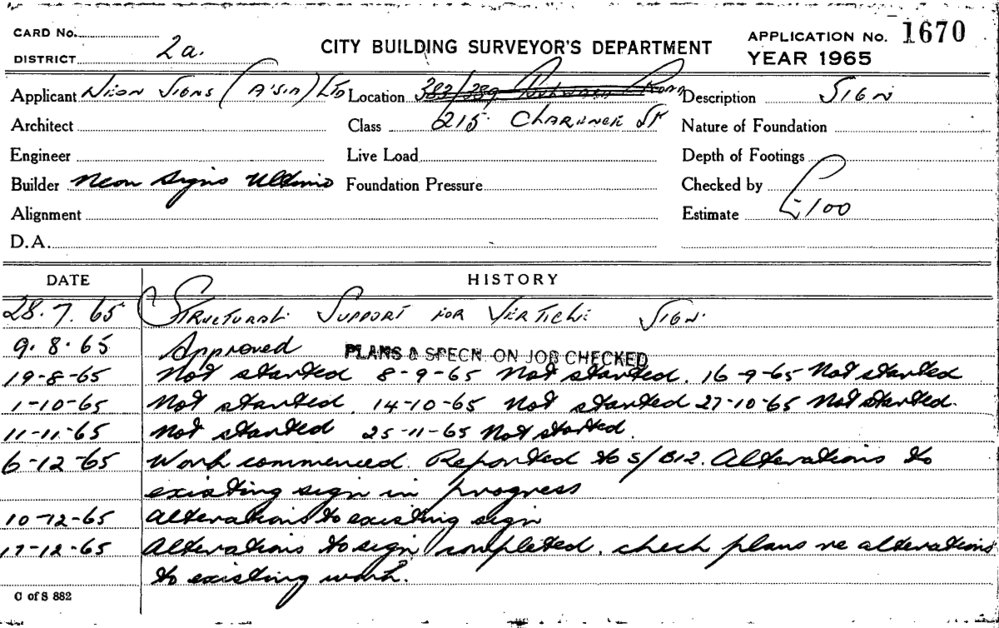 CARD No.
DISTRICT 2a.
CITY BUILDING SURVEYOR'S DEPARTMENT
APPLICATION No. 1670
YEAR 1965
Applicant Neon Signs (A'sia) Ltd Location 383/389 Road Description Sign
Architect Class 215 Clarence St Nature of Foundation
Engineer Live Load Depth of Footings
Builder Neon Signs Foundation Pressure Checked by
Alignment Estimate £100
D.A.
DATE HISTORY
28.7.65 Structural Support for Vertical Sign.
9.8.65 Approved PLANS & SPECN. ON JOB CHECKED
19-8-65 Not started 8-9-65 Not started. 16-9-65 Not started
1-10-65 Not started. 14-10-65 Not started 27-10-65 Not started.
11-11-65 Not started 25-11-65 Not started.
6-12-65 Work commenced. Reported to S/B12. Alterations to
existing sign in progress
10-12-65 Alterations to existing sign
17-12-65 Alterations to sign completed. check plans re alterations
to existing work.
C of S 882